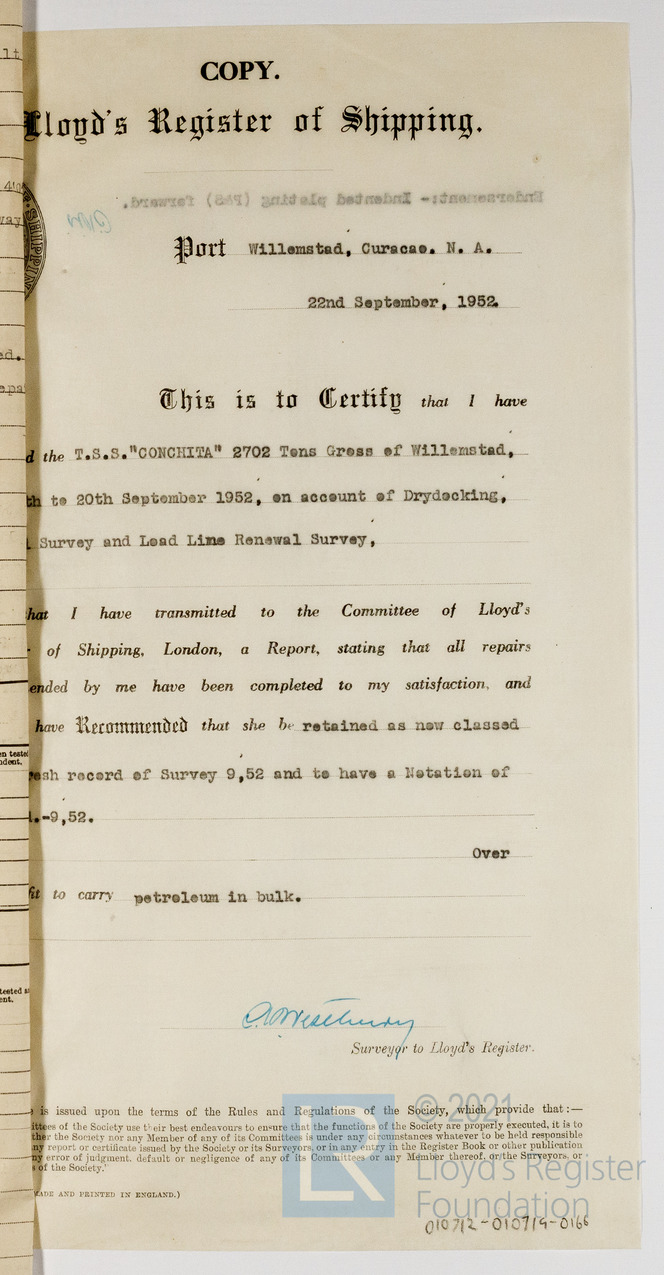 COPY.
Lloyd's Register of Shipping.
Endorsement:- Indented plating (P&S) forward.
Port Willemstad, Curacao. N. A.
22nd September, 1952.
This is to Certify that I have
d the T.S.S."CONCHITA" 2702 Tons Gross of Willemstad,
th to 20th September 1952, on account of Drydocking,
Survey and Load Line Renewal Survey,
hat I have transmitted to the Committee of Lloyd's
of Shipping, London, a Report, stating that all repairs
ended by me have been completed to my satisfaction, and
have Recommended that she be retained as now classed
resh record of Survey 9,52 and to have a Notation of
.-9,52.
Over
fit to carry petroleum in bulk.
Surveyor to Lloyd's Register.
is issued upon the terms of the Rules and Regulations of the Society, which provide that:—
ittees of the Society use their best endeavours to ensure that the functions of the Society are properly executed, it is to
ther the Society nor any Member of any of its Committees is under any circumstances whatever to be held responsible
ny report or certificate issued by the Society or its Surveyors, or in any entry in the Register Book or other publication
ny error of judgment, default or negligence of any of its Committees or any Member thereof, or the Surveyors, or
s of the Society.'
MADE AND PRINTED IN ENGLAND.)
© 2021
LR
Lloyd's Register
Foundation
010712-010719-0166